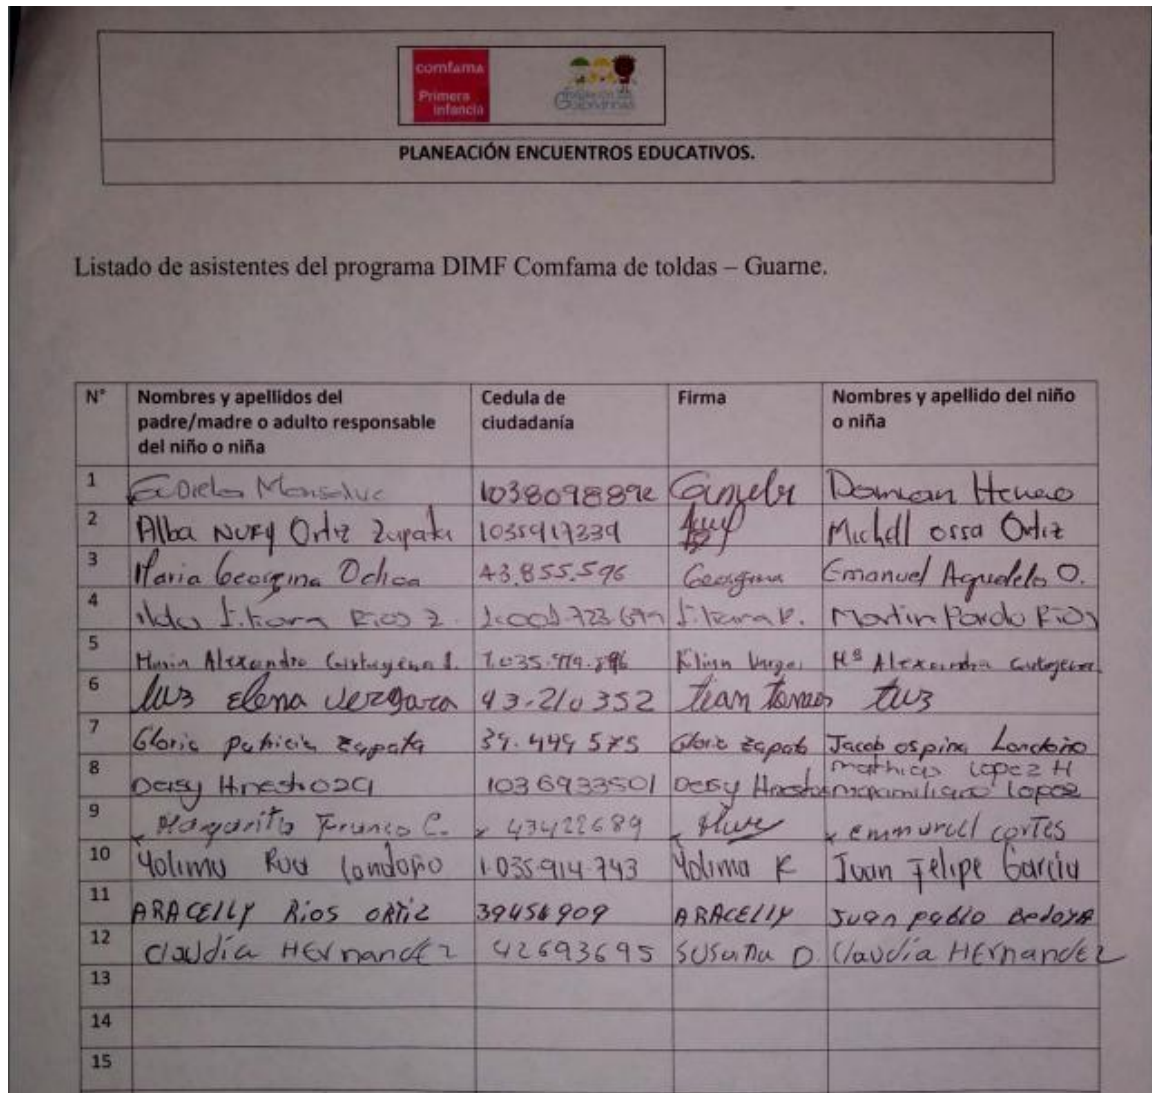 comfama
Primera
infancia
PLANEACIÓN ENCUENTROS EDUCATIVOS.
Listado de asistentes del programa DIMF Comfama de toldas – Guarne.
N° Nombres y apellidos del padre/madre o adulto responsable del niño o niña Cedula de ciudadanía Firma Nombres y apellido del niño o niña
1 Monsalve 1038098892 Damian Henao
2 Alba Nury Ortiz Zapata 1035917339 Michell ossa Ortiz
3 Maria Georgina Ochoa 43.855.596 Georgina Emanuel Agudelo O.
4 Rios Z. Martin Pardo Rios
5 Maria Alexandra Vargas Mª Alexandra
6 luz Elena Vergara 43.210352 luz
7 Gloria patricia zapata 39.449 575 Gloria zapata Jacob ospina Londoño
8 Deisy Hinestroza 1036933501 Deisy mathias Lopez H
maximiliano Lopez
9 Margarita Franco C. 43422689 emmanuel cortes
10 Yolima Londoño 1.035.914.743 Yolima R Juan Felipe Garcia
11 ARACELLY Rios ORTIZ 39454909 ARACELLY Juan pablo Bedoya
12 Claudia HErnandEz 42693695 SUSaNa D. Claudia HErnandEz
13
14
15